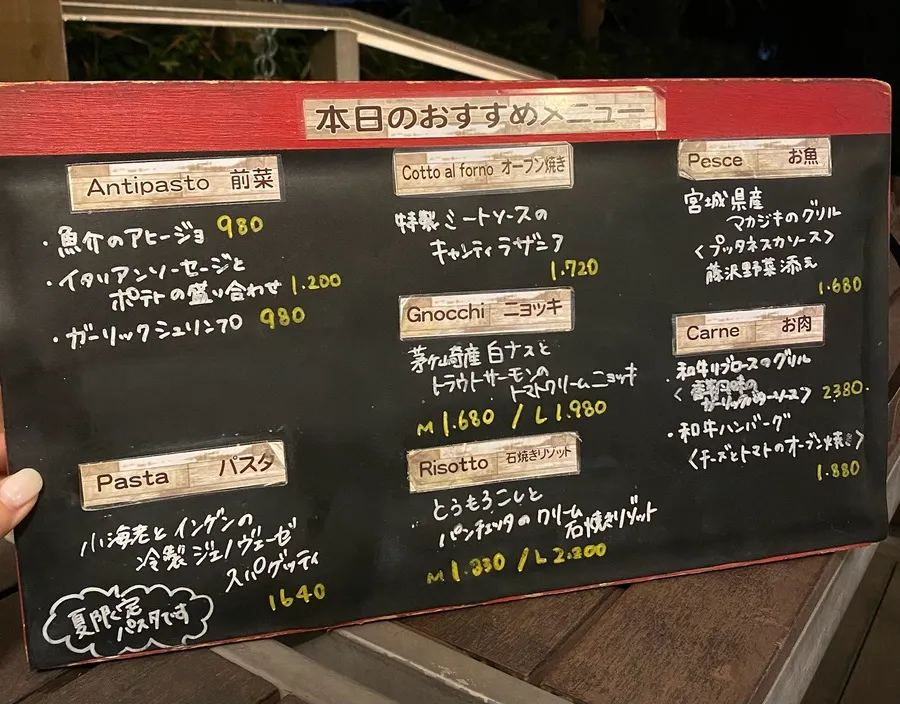 本日のおすすめメニュー
Antipasto 前菜
・魚介のアヒージョ 980
・イタリアンソーセージと
ポテトの盛り合わせ 1.200
・ガーリックシュリンプ 980
Pasta パスタ
小海老とインゲンの
冷製ジェノヴェーゼ
スパゲッティ
1640
夏限定
パスタです
Cotto al forno オーブン焼き
特製ミートソースの
キャンティラザニア
1.720
Gnocchi ニョッキ
茅ヶ崎産白ナスと
トラウトサーモンの
トマトクリームニョッキ
M 1.680 / L 1.980
Risotto 石焼きリゾット
とうもろこしと
パンチェッタのクリーム
石焼きリゾット
M 1.830 / L 2.200
Pesce お魚
宮城県産
マカジキのグリル
〈プッタネスカソース〉
藤沢野菜添え
1.680
Carne お肉
・和牛リブロースのグリル
〈
ガーリックバターソース〉 2380.
・和牛ハンバーグ
〈チーズとトマトのオーブン焼き〉
1.880